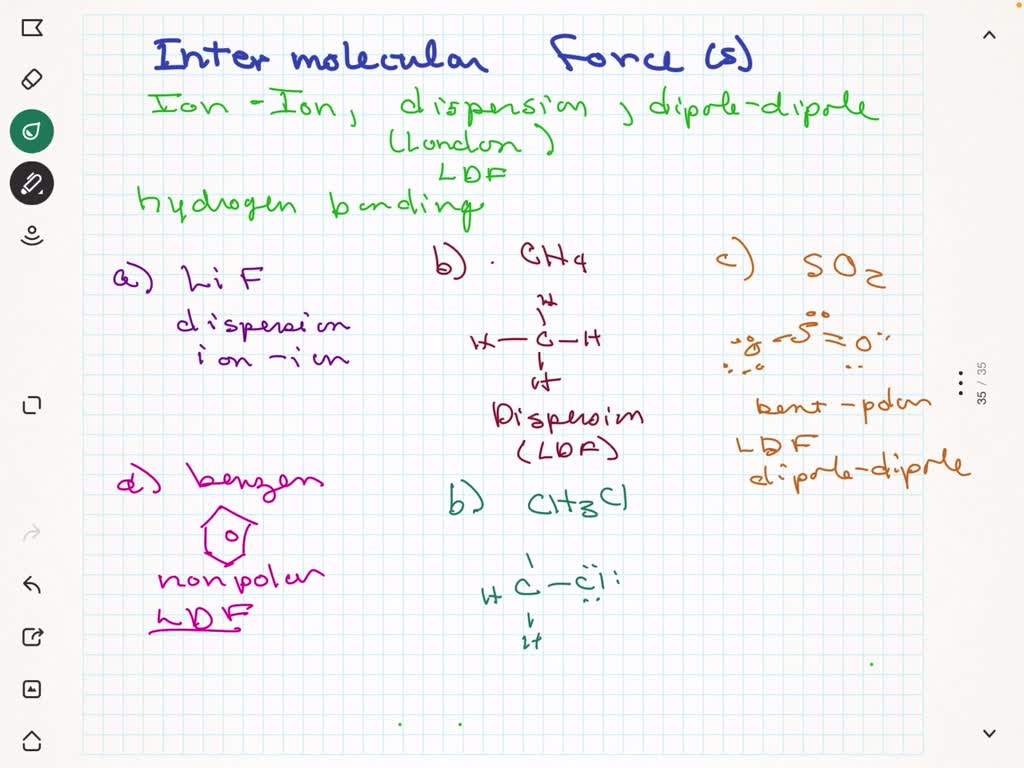 Inter molecular Force(s)
Ion - Ion, dispersion, dipole-dipole
(London)
LDF
hydrogen bonding
a) LiF
dispersion
ion - ion
b) . CH4
H
H - C - H
H
Dispersion
(LDF)
c) SO2
O - S = O
bent - polar
LDF
dipole-dipole
d) benzen
nonpolar
LDF
b) CH3Cl
H C - Cl
H
35 / 35